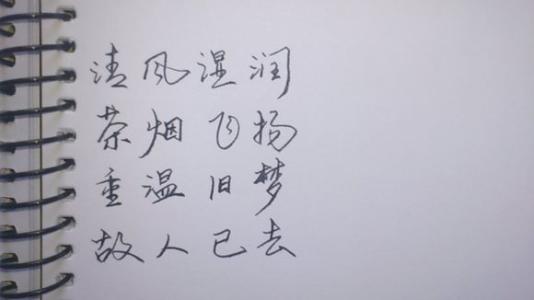 清风湿润
茶烟飞扬
重温旧梦
故人已去